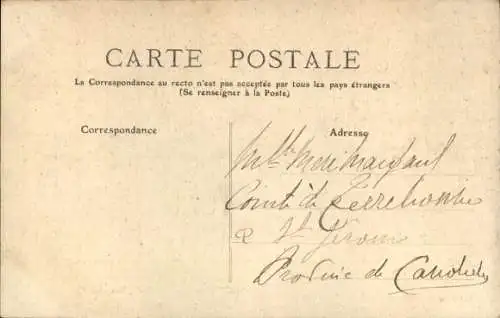 CARTE POSTALE
La Correspondance au recto n'est pas acceptée par tous les pays étrangers
(Se renseigner à la Poste.)
Correspondance
Adresse
Mlle
Comté de Terrebonne
St Jérome
Province de